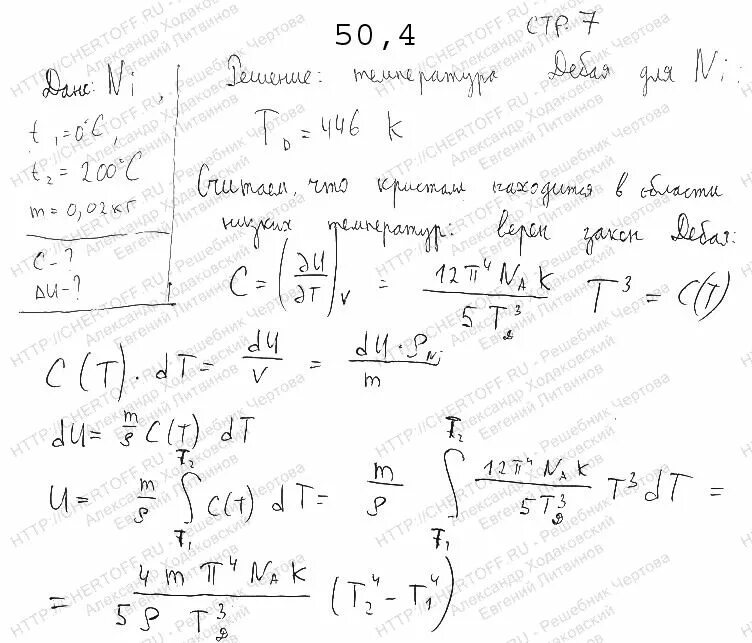 50,4
стр. 7
Дано: Ni,
t₁=0°C,
t₂=200°C
m=0,02кг
C-?
ΔU-?
Решение: температура Дебая для Ni:
T_D=446 K
Считаем, что кристалл находится в области
низких температур: верен закон Дебая:
C = (∂U/∂T)_V = (12π⁴ N_A k)/(5 T_D³) T³ = C(T)
C(T)·dT = dU/V = (dU·ρ_Ni)/m
dU = m/ρ C(T) dT
U = m/ρ ∫_{T₁}^{T₂} C(T) dT = m/ρ ∫_{T₁}^{T₂} (12π⁴ N_A k)/(5T_D³) T³ dT =
= (4 m π⁴ N_A k)/(5 ρ T_D³) (T₂⁴ - T₁⁴)
HTTP://CHERTOFF.RU - Решебник Чертова
Александр Ходаковский
Евгений Литвинов